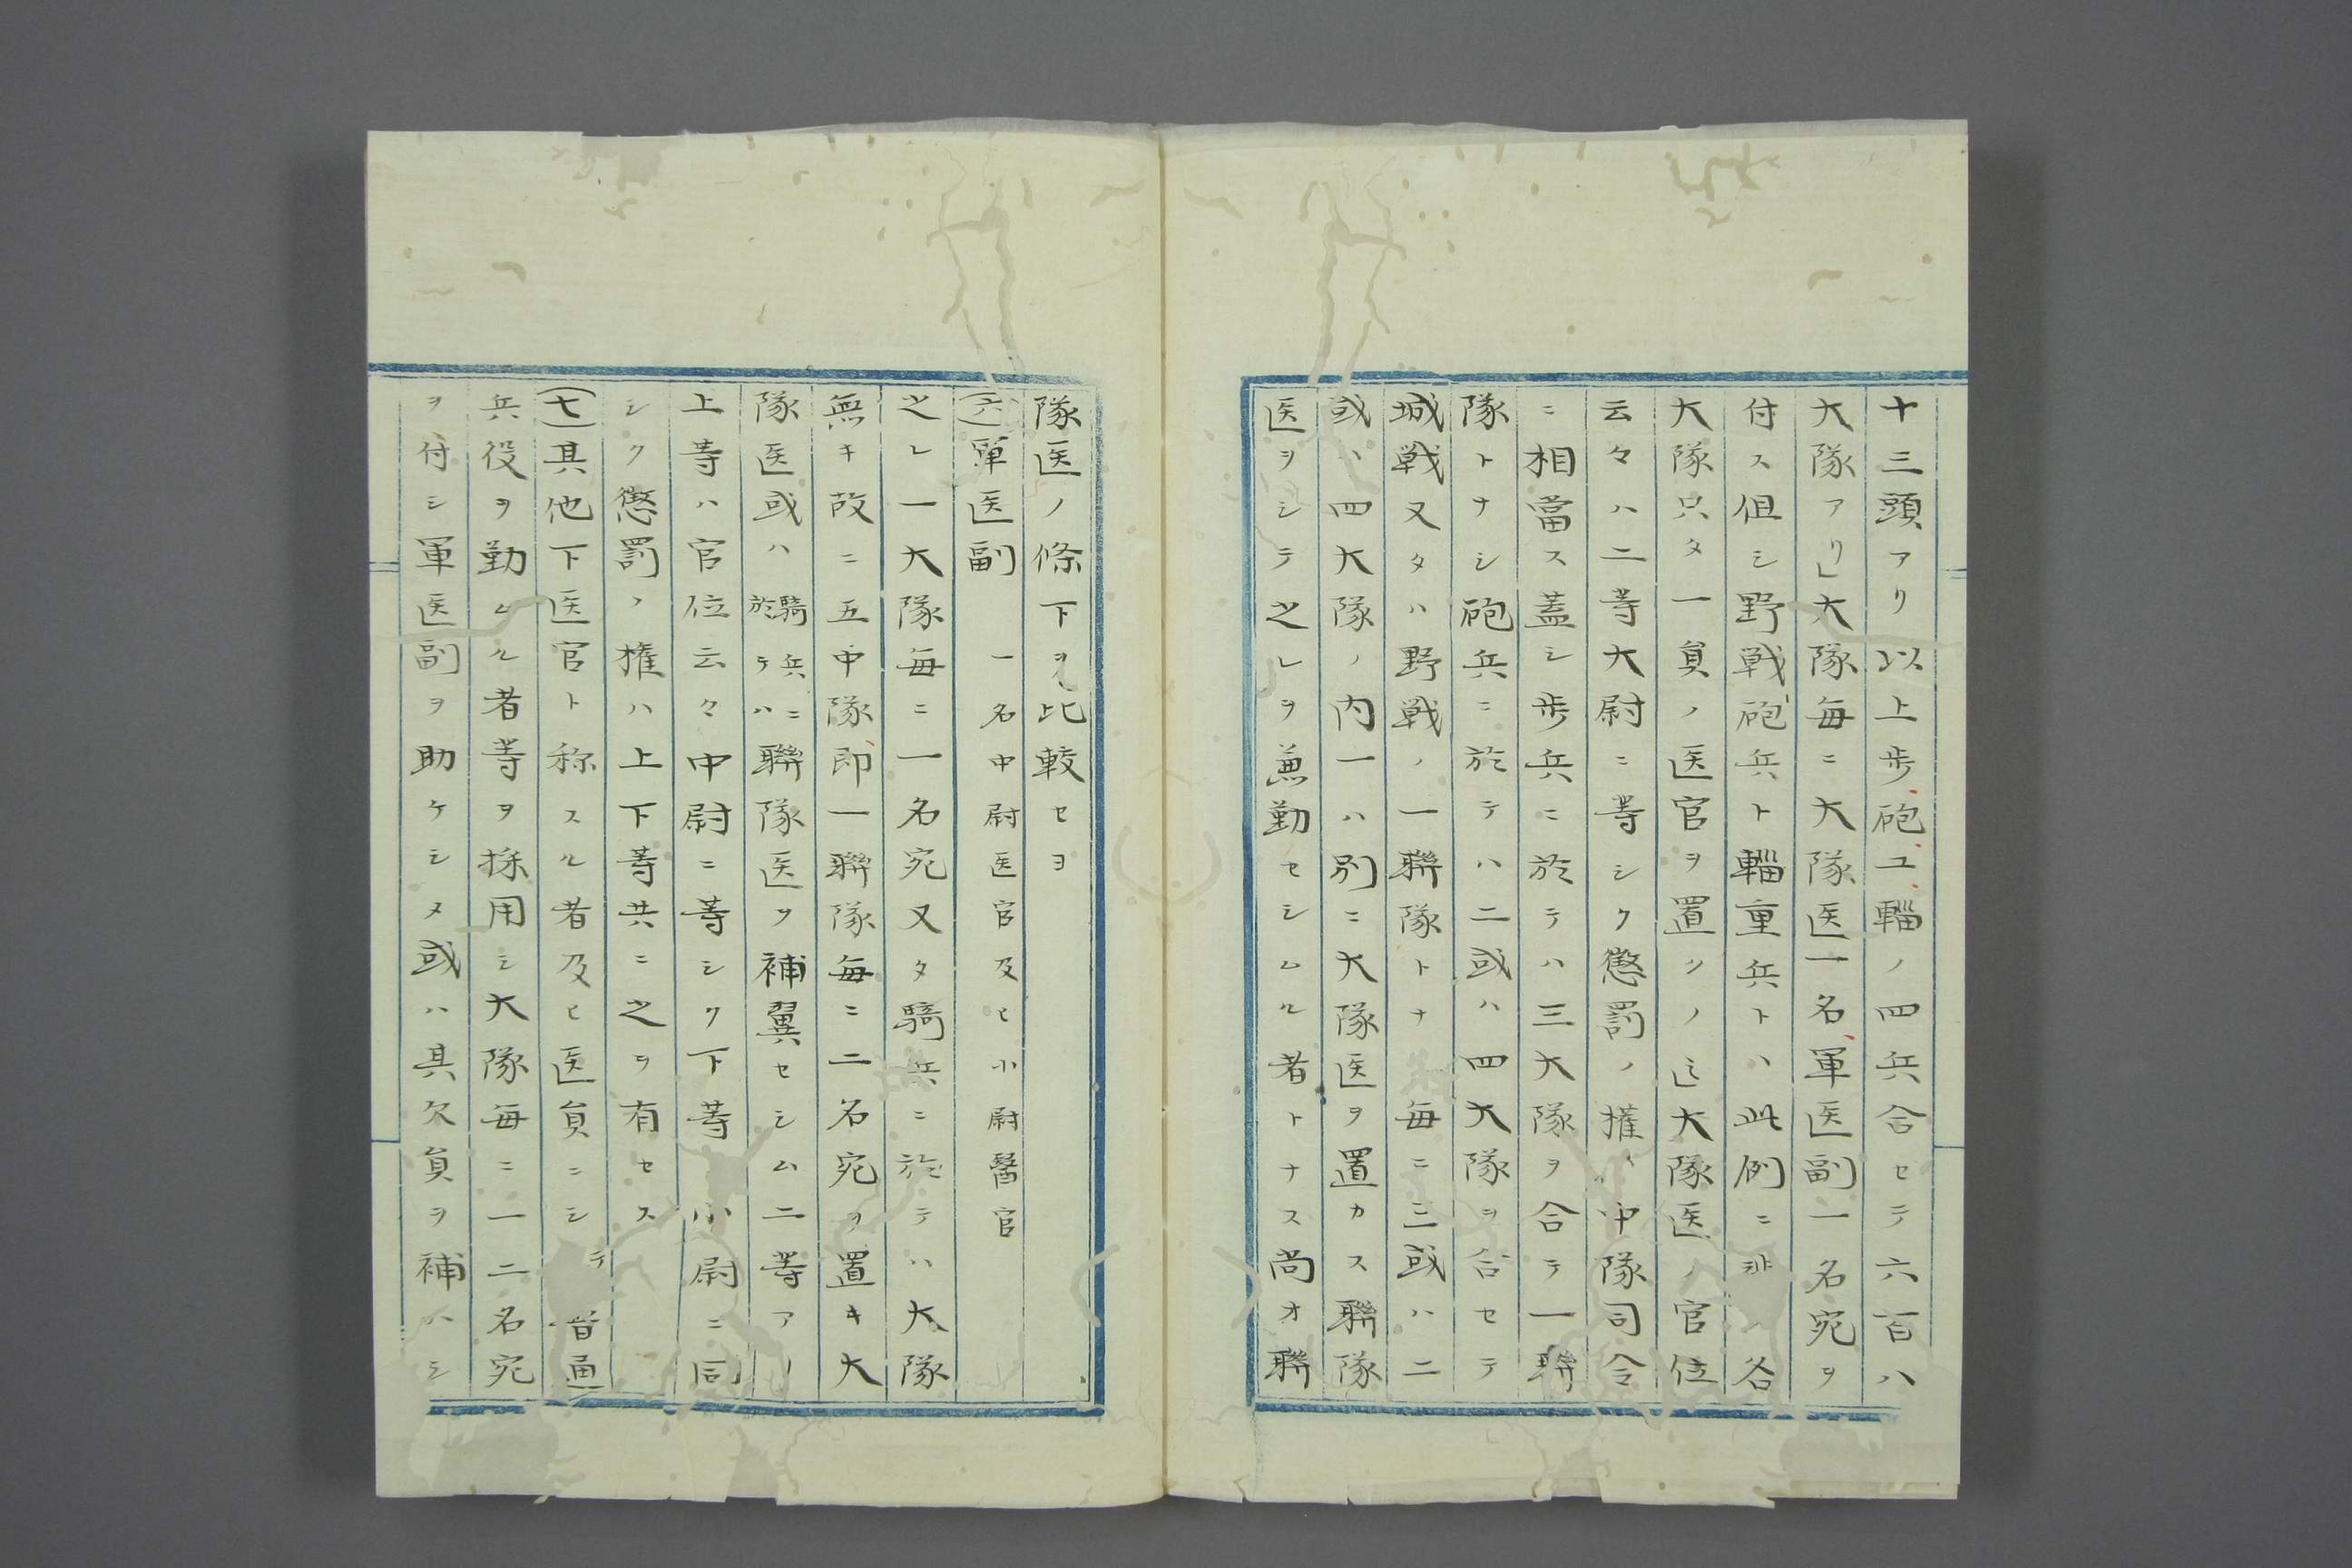 十三頭アリ以上歩、砲、工、輜ノ四兵合セテ六百八
大隊アリ」大隊毎ニ大隊医一名、軍医副一名宛ヲ
付ス但シ野戦砲兵ト輜重兵トハ此例ニ非ス各
大隊只タ一員ノ医官ヲ置クノミ」大隊医ノ官位
云々ハ二等大尉ニ等シク懲罰ノ権ハ中隊司令
ニ相當ス蓋シ歩兵ニ於テハ三大隊ヲ合テ一聯
隊トナシ砲兵ニ於テハ二或ハ四大隊ヲ合セテ
城戦又タハ野戦ノ一聯隊トナ毎ニ三或ハ二
或ハ四大隊ノ内一ハ別ニ大隊医ヲ置カス聯隊
医ヲシテ之レヲ兼勤セシムル者トナス尚オ聯
隊医ノ條下ヲ比較セヨ
(六)軍医副 一名中尉医官及ヒ小尉醫官
之レ一大隊毎ニ一名宛又タ騎兵ニ於テハ大隊
無キ故ニ五中隊、即一聯隊毎ニ二名宛ヲ置キ大
隊医或ハ騎兵ニ於テハ聯隊医ヲ補翼セシム二等アリ
上等ハ官位云々中尉ニ等シク下等ハ小尉ニ同
シク懲罰ノ権ハ上下等共ニ之ヲ有セス
(七)其他下医官ト称スル者及ヒ医員ニシテ普通
兵役ヲ勤ムル者等ヲ採用シ大隊毎ニ一二名宛
ヲ付シ軍医副ヲ助ケシメ或ハ其欠員ヲ補ハシ